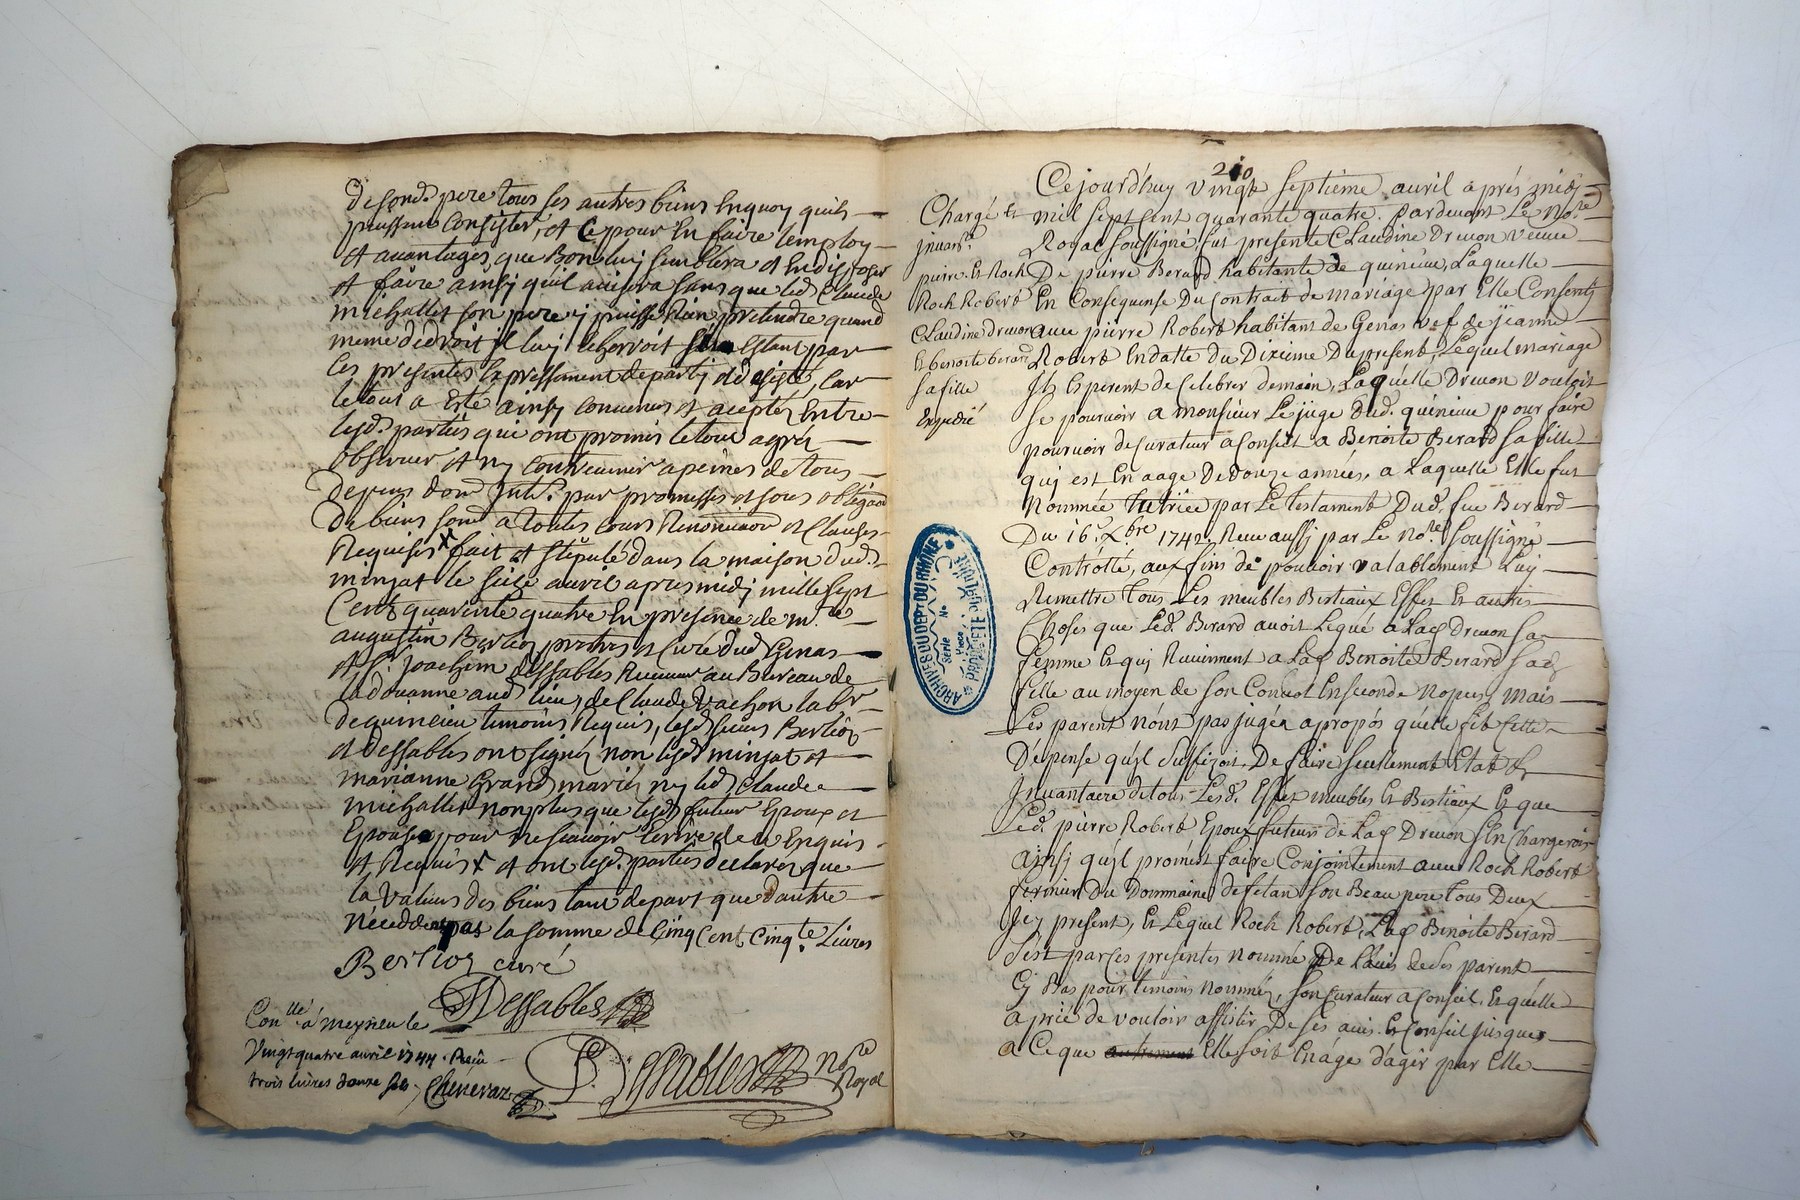 desond. pere tous ses autres biens Enquoy quils
puissent consister, et Ce pour En faire lemploy
et auantages que Bon luy semblera et En disposer
et faire ainsy quil auisera sans que led. Claude
michallet son pere y puisse Rien pretendre quand
meme dedroit il luy Echerroit sen Estant par
Ces presentes Expressement departy et desisté, Car
letout a Esté ainsy conuenus et acepté Entre
lesd. parties qui ont promis letout agréer
obseruer et ny contreuenir apeines detous
depens dom. Int. par promesses et sous obligaon
de biens soum. a toutes cours Renonciaon et Clauses
Requises x fait et stipulé dans la maison dud.
minjat le seize auril apres midy mille sept
Cent quarente quatre En presence de m.re
augustin Berlioz pretre et Curé dud. Genas
et s. Joachim dessables Receueur au Bureau de
la doüanne aud. lieu, de Claude Vachon labr
de quincieu temoins Requis, lesd. sieurs Berlioz
et dessables ont signez non lesd. minjat et
marianne Grand mariez ny led. Claude
michallet non plus que lesd. futur Epoux et
Epouse pour ne scauoir Ecrire de ce Enquis
et Requis x et ont lesd. parties declarez que
la Valeurs des biens tant depart que dautre
nexcedent pas la somme de Cinq Cent Cinq.te Liures
Berlioz curé
JDessables
Con.llé a meyzieu le
Vingtquatre auril 1744. Reçu
trois liures douze sols, Chenevaz
Dessables n.re
Royal
210
Cejourdhuy Vingt septieme auril aprés midy
mil sept Cent quarante quatre. pardeuant Le No.re
Royal soussigné fut presente Claudine Dreuon Veuue
De pierre Berard habitante de quincieu, Laquelle
En Consequense Du Contrait de mariage par Elle Consenty
auec pierre Robert habitant de Genas Vef de jeanne
Robert En datte du Dixieme Dupresent, Lequel mariage
Ils Esperent de Celebrer demain, Laquelle Dreuon Vouloit
se pouruoir a monsieur Le juge Dud. quincieu pour faire
pouruoir de Curateur a Conseil a Benoite Berard sa fille
qui est En aage De Douze années, a Laquelle Elle fut
Nommée tutrice par Le testament Dud. feu Berard
Du 16. Xbre 1742 Receu aussy par Le No.re soussigné
Controllé, aux fins de pouuoir Valablement Luy
Remettre tous Les meubles Bestiaux Effet Et autres
Choses que Led. Berard auoit Legué a Lad. Dreuon sa
femme Et qui Reuiennent a Lad. Benoite Berard sad.
fille au moyen de son Conuol En seconde Nopces, mais
Les parent n'ont pas jugéz apropós quelle fit Cette
Dépense qu'jl suffizoit De faire seulement Etat Et
Jnuantaire detous Lesd. Effet meubles Et Bestiaux Et que
Led. pierre Robert Epoux futur de Lad. Dreuon s'En Chargeroit
ainsy qu'jl promest faire Conjointement auec Roch Robert
fermier Du Dommaine de fetan son Beau pere tous Deux
Jcy present, Et Lequel Roch Robert, Lad. Benoite Berard
s'est par ces presentes nommé De L'auis de ses parent
Cy Bas pour temoins Nommés, son Curateur a Conseil, Et qu'elle
a prié de vouloir assister De ses auis Et Conseil jusques
a Ce que autrement Elle soit En âge d'agir par Elle
Chargé Et
jnuan.re
pierre Et Roch
Roch Robert
Claudine dreuon
Et benoite berard
sa fille
Expedié
ARCHIVES DU DEPT DU RHONE
Série No
Pièce
PROPRIÉTÉ PUBLIQUE